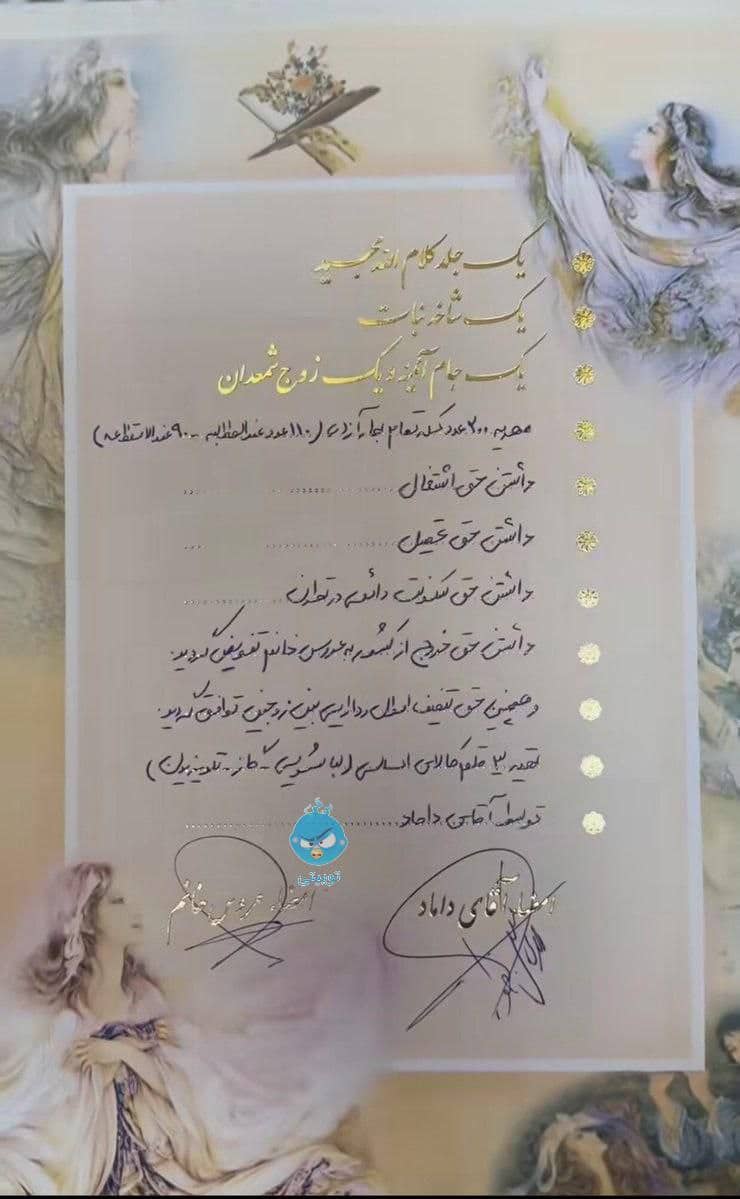 یک جلد کلام الله مجید
یک شاخه نبات
یک جام آئینه و یک زوج شمعدان
مهریه ۲۰۰ عدد سکه تمام بهار آزادی (۱۱۰ عدد عندالمطالبه - ۹۰ عندالاستطاعه)
داشتن حق اشتغال
داشتن حق تحصیل
داشتن حق سکونت دائمی در تهران
داشتن حق خروج از کشور به عروس خانم تفویض گردید.
و همچنین حق تنصیف اموال و دارایی بین زوجین توافق گردید.
تهیه ۳ قلم کالای اساسی (لباسشویی - گاز - تلویزیون)
توسط آقای داماد
امضاء آقای داماد
امضاء عروس خانم
توییتی